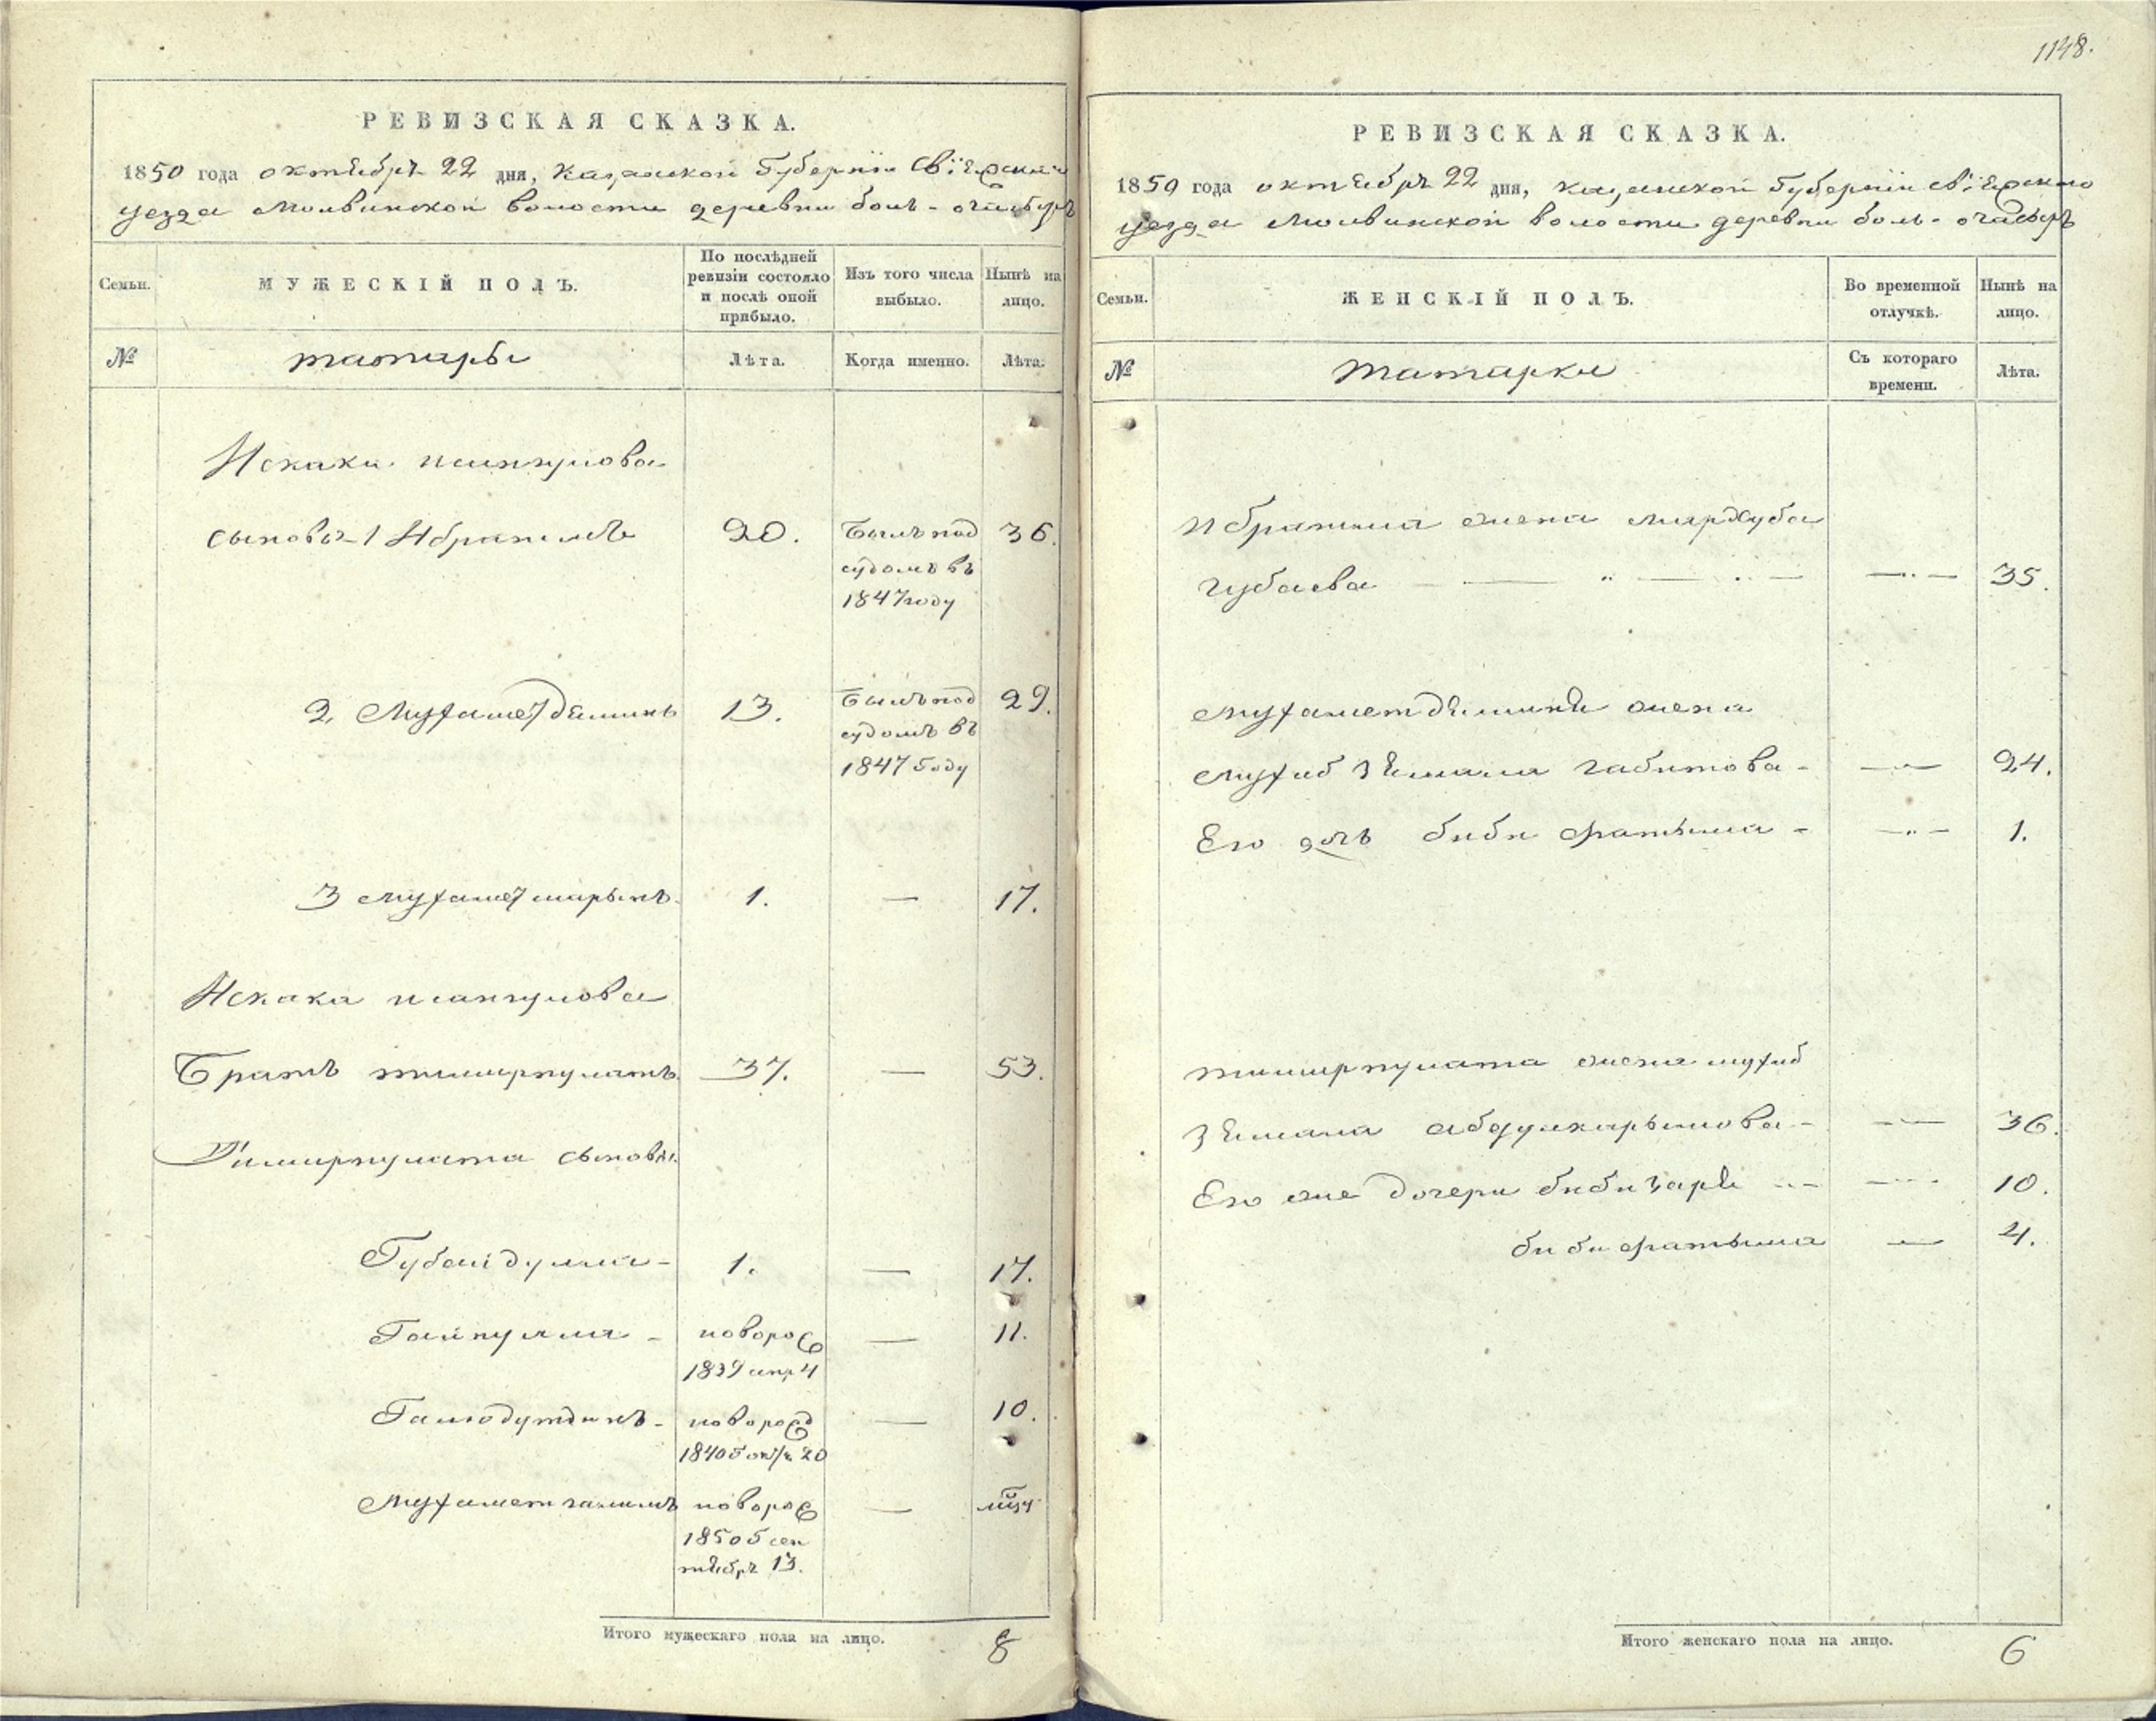 1148.
РЕВИЗСКАЯ СКАЗКА.
1850 года октября 22 дня, Казанской Губернiи Свiяжскаго
уезда Молвинской волости деревни бол-
Семьи.
МУЖЕСКIЙ ПОЛЪ.
По послѣдней
ревизiи состояло
и послѣ оной
прибыло.
Изъ того числа
выбыло.
Нынѣ на
лицо.
№
татары
Лѣта.
Когда именно.
Лѣта.
Искака
сыновья 1 Ибрагимъ 20. Былъ под 36.
судомъ въ
1847 году
2 Мухаметзяминъ 13. Былъ под 29.
судомъ въ
1847 Году
3 мухамет 1. — 17.
Искака
Братъ тимирпулатъ 37. — 53.
Тимирпулата сыновья
Губайдулла - 1. — 17.
Гайнулла - новорож — 11.
1839 апр 4
новорожд — 10.
1840 20
Мухаметгалимъ новорож —
1850 Г сен
тября 13.
Итого мужескаго пола на лицо. 8
РЕВИЗСКАЯ СКАЗКА.
1850 года октября 22 дня, казанской Губернiи свiяжскаго
уезда Молвинской волости деревни боль-
Семьи.
ЖЕНСКIЙ ПОЛЪ.
Во временной
отлучкѣ.
Нынѣ на
лицо.
№
татарки
Съ котораго
времени.
Лѣта.
Ибрагима жена
губаева — — — — 35.
жена
габитова - — 24.
Его дочь биби фатыма - — 1.
тимирпулата жена
абдулкарымова - — 36.
Его же дочери — 10.
биби фатыма — 4.
Итого женскаго пола на лицо. 6